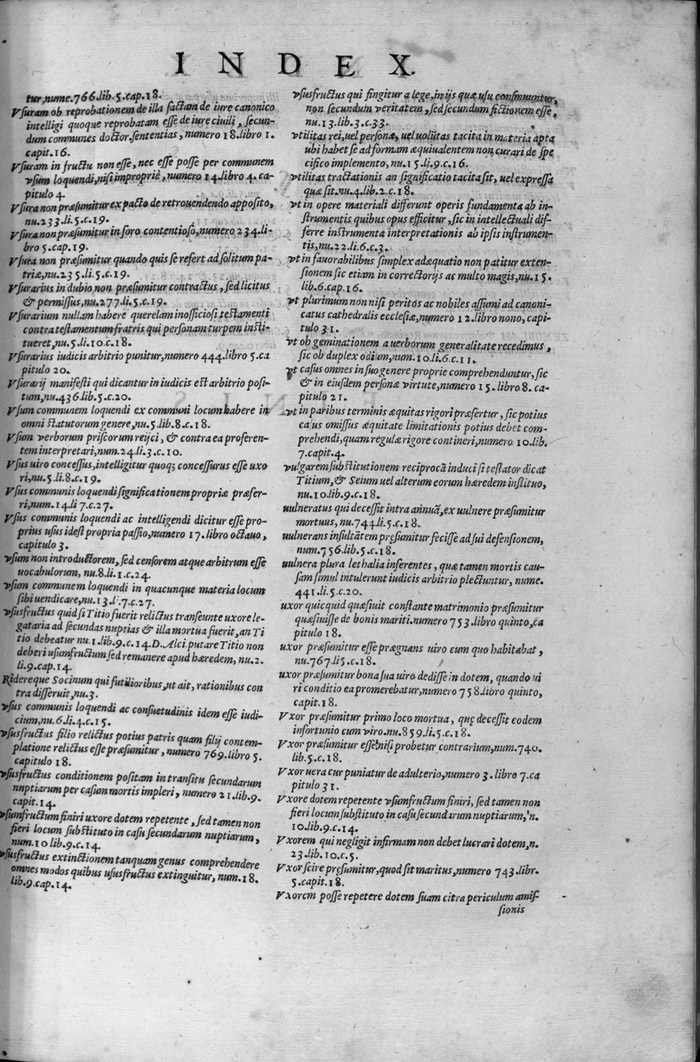 INDEX.
tur, nume.766.lib.5.cap.18.
Vsuram ob reprobationem de illa factam de iure canonico
intelligi quoque reprobatam esse de iure ciuili, secun-
dum communes doctor.sententias, numero 18.libro 1.
capit.16.
Vsuram in fructu non esse, nec esse posse per communem
vsum loquendi, nisi impropriè, numero 14.libro 4. ca-
pitulo 4.
Vsura non præsumitur ex pacto de retrouendendo apposito,
nu.233.li.5.c.19.
Vsura non præsumitur in foro contentioso, numero 234.li-
bro 5.cap.19.
Vsura non præsumitur quando quis se refert ad solitum pa-
triæ, nu.235.li.5.c.19.
Vsurarius in dubio non præsumitur contractus, sed licitus
& permissus, nu.277.li.5.c.19.
Vsurarium nullam habere querelam inofficiosi testamenti
contra testamentum fratris qui personam turpem insti-
tueret, nu.5.li.10.c.18.
Vsurarius iudicis arbitrio punitur, numero 444.libro 5.ca
pitulo 20.
Vsurarij manifesti qui dicantur in iudicis est arbitrio posi-
tum, nu.436.lib.5.c.20.
Vsum communem loquendi ex communi locum habere in
omni statutorum genere, nu.5.lib.8.c.18.
Vsum verborum priscorum reijci, & contra ea proferen-
tem interpretari, num.24.li.3.c.10.
Vsus uiro concessus, intelligitur quoq; concessurus esse uxo
ri, nu.5.li.8.c.19.
Vsus communis loquendi significationem propriæ præfer-
ri, num.14.li 7.c.27.
Vsus communis loquendi ac intelligendi dicitur esse pro-
prius usus idest propria passio, numero 17. libro octauo,
capitulo 3.
vsum non introductorem, sed censorem atque arbitrum esse
uocabulorum, nu.8.li.1.c.24.
vsum communem loquendi in quacunque materia locum
sibi uendicare, nu.13.l.7.c.27.
vsusfructus quid si Titio fuerit relictus transeunte uxore le-
gataria ad secundas nuptias & illa mortua fuerit, an Ti
tio debeatur nu.1.lib.9.c.14. D. Alci. putare Titio non
deberi usumfructum sed remanere apud hæredem, nu.2.
li.9.cap.14.
Ridereque Socinum qui futilioribus, ut ait, rationibus con
tra disseruit, nu.3.
vsus communis loquendi ac consuetudinis idem esse iudi-
cium, nu.6.li.4.c.15.
vsusfructus filio relictus potius patris quam filij contem-
platione relictus esse præsumitur, numero 769.libro 5.
capitulo 18.
vsusfructus conditionem positam in transitu secundarum
nuptiarum per casum mortis impleri, numero 21.lib.9.
capit.14.
vsumfructum finiri uxore dotem repetente, sed tamen non
fieri locum substituto in casu secundarum nuptiarum,
num.10 lib.9.c.14.
vsusfructus extinctionem tanquam genus comprehendere
omnes modos quibus ususfructus extinguitur, num.18.
lib.9.cap.14.
vsusfructus qui fingitur a lege, in ijs quæ usu consumuntur,
non secundum veritatem, sed secundum fictionem esse,
nu.13.lib.3.c.33.
vtilitas rei, uel personæ, uel uolūtas tacita in materia apta
ubi habet se ad formam æquiualentem non curari de spe
cifico implemento, nu.15.li.9.c.16.
vtilitas tractationis an significatio tacita sit, uel expressa
quæ sit, nu.4.lib.2.c.18.
vt in opere materiali differunt operis fundamenta ab in-
strumentis quibus opus efficitur, sic in intellectuali dif-
ferre instrumenta interpretationis ab ipsis instrumen-
tis, nu.22.li.6.c.3.
vt in fauorabilibus simplex adæquatio non patitur exten-
sionem sic etiam in correctorijs ac multo magis, nu.15.
lib.6.cap.16.
vt plurimum non nisi peritos ac nobiles assumi ad canoni-
catus cathedralis ecclesiæ, numero 12.libro nono, capi-
tulo 31.
vt ob geminationem a uerborum generalitate recedimus,
sic ob duplex odium, num.10.li.6.c.11.
vt casus omnes in suo genere proprie comprehenduntur, sic
& in eiusdem personæ virtute, numero 15. libro 8. ca-
pitulo 21.
vt in paribus terminis æquitas rigori præfertur, sic potius
casus omissus æquitate limitationis potius debet com-
prehendi, quam regulæ rigore contineri, numero 10.lib.
7.capit.4.
vulgarem substitutionem reciprocā induci si testator dicat
Titium, & Seium uel alterum eorum hæredem instituo,
nu.10.lib.9.c.18.
uulneratus qui decessit intra annuā, ex uulnere præsumitur
mortuus, nu.744.li.5.c.18.
uulnerans insultātem præsumitur fecisse ad sui defensionem,
num.756.lib.5.c.18.
uulnera plura lethalia inferentes, quæ tamen mortis cau-
sam simul intulerunt iudicis arbitrio plectuntur, nume.
441.li.5.c.20.
uxor quicquid quæsiuit constante matrimonio præsumitur
quæsiuisse de bonis mariti.numero 753.libro quinto, ca
pitulo 18.
uxor præsumitur esse prægnans uiro cum quo habitabat,
nu.767.li.5.c.18.
uxor præsumitur bona sua uiro dedisse in dotem, quando ui
ri conditio ea promerebatur, numero 758.libro quinto,
capit.18.
Vxor præsumitur primo loco mortua, quę decessit eodem
infortunio cum viro.nu.859.li.5.c.18.
Vxor præsumitur esse nisi probetur contrarium, num.740.
lib.5.c.18.
Vxor uera cur puniatur de adulterio, numero 3.libro 7.ca
pitulo 31.
Vxore dotem repetente vsumfructum finiri, sed tamen non
fieri locum substituto in casu secundarum nuptiarum, n.
10.lib.9.c.14.
Vxorem qui negligit infirmam non debet lucrari dotem, n.
23.lib.10.c.5.
Vxor scire præsumitur, quod sit maritus, numero 743.libr.
5.capit.18.
Vxorem posse repetere dotem suam citra periculum amis-
sionis